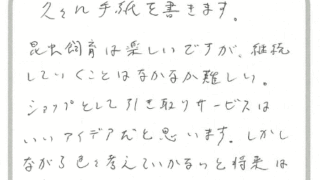 久々に手紙を書きます。
昆虫飼育は楽しいですが、継続
していくことはなかなか難しい。
ショップとして引き取りサービスは
いいアイデアだと思います。しかし
ながら色々考えていかないと将来は